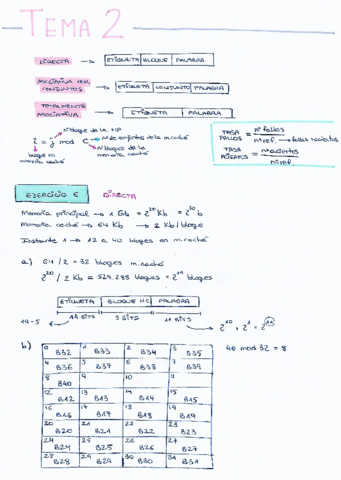 TEMA 2
DIRECTA → ETIQUETA BLOQUE PALABRA
ASOCIATIVA POR CONJUNTOS → ETIQUETA CONJUNTO PALABRA
TOTALMENTE ASOCIATIVA → ETIQUETA PALABRA
bloque de la MP
i = j mod C
nº de conjuntos de la m. caché
nº bloques de la memoria caché
bloque m. memoria caché
TASA FALLOS = nº fallos / nº ref. → fallos + aciertos
TASA ACIERTOS = nº aciertos / nº ref.
EJERCICIO 5 DIRECTA
Memoria principal → 1 Gb = 2²⁰ Kb = 2³⁰ b
Memoria caché → 64 Kb → 2 Kb/bloque
Instante 1 → 12 a 40 bloques en m. caché
a) 64 / 2 = 32 bloques m. caché
2²⁰ / 2 Kb = 524.288 bloques = 2¹⁹ bloques
ETIQUETA BLOQUE MC PALABRA
19-5 14 BITS 5 BITS 11 BITS → 2¹⁰ · 2¹ = 2¹¹
b)
0 B32 1 B33 2 B34 3 B35
40 mod 32 = 8
4 B36 5 B37 6 B38 7 B39
8 B40 9 10 11
12 B12 13 B13 14 B14 15 B15
16 B16 17 B17 18 B18 19 B19
20 B20 21 B21 22 B22 23 B23
24 B24 25 B25 26 B26 27 B27
28 B28 29 B29 30 B30 31 B31